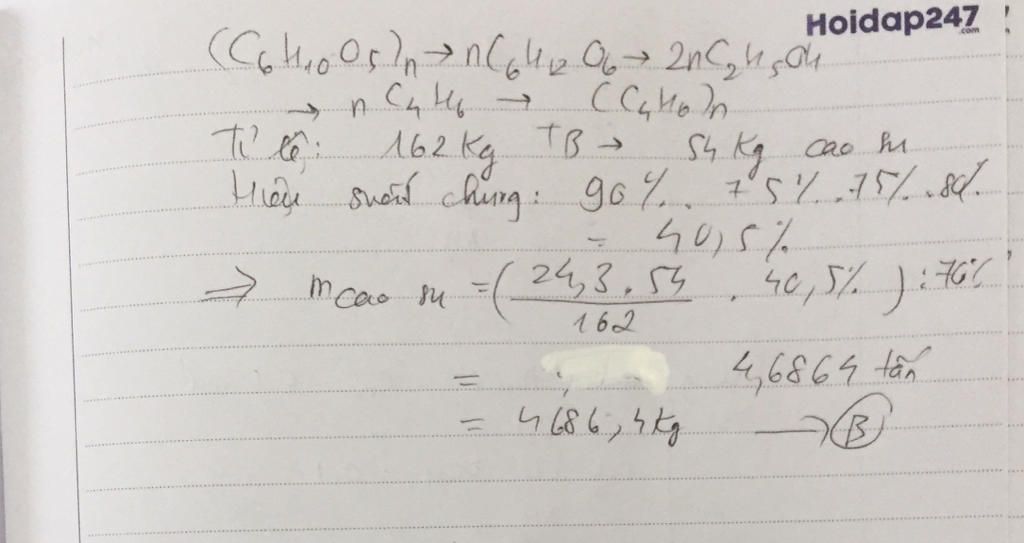 Hoidap247
.com
(C₆H₁₀O₅)n → nC₆H₁₂O₆ → 2nC₂H₅OH
→ n C₄H₆ → (C₄H₆)n
Tỉ lệ: 162 Kg TB → 54 Kg cao su
Hiệu suất chung: 90%. 75%.75%.80%.
= 40,5%
⇒ m cao su = (24,3.54 / 162 . 40,5%) : 70%
= 4,6864 tấn
= 4686,4 kg → B